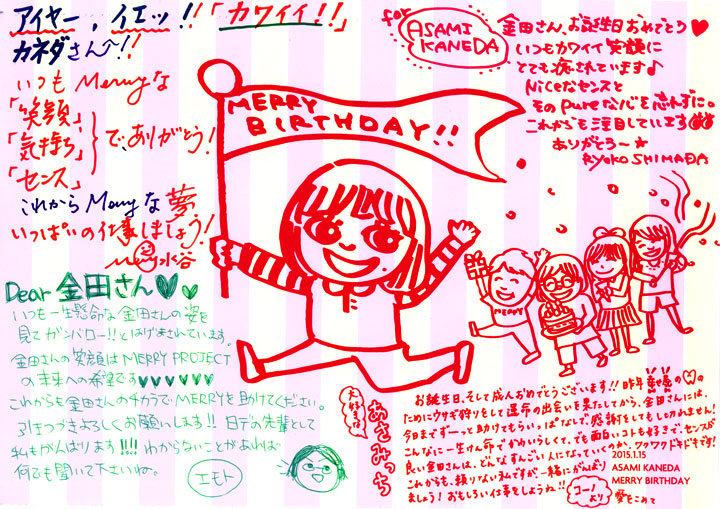 アイヤー、イエッ!!「カワイイ!!」
カネダさんへ!!
いつもMerryな
「笑顔」
「気持ち」
「センス」
で、ありがとう!
これからMerryな夢
いっぱいの仕事しましょう!
Merry水谷
for
ASAMI
KANEDA
金田さん、お誕生日おめでとう♥
いつもカワイイ笑顔に
とても癒されています♪
Niceなセンスと
そのpureな心を忘れずに。
これからも注目しています
ありがとう〜★
RYOKO SHIMADA
MERRY
BIRTHDAY!!
MERRY
Dear 金田さん♥♥
いつも一生懸命な金田さんの姿を
見てガンバロー!!とはげまされています。
金田さんの笑顔はMERRY PROJECT
の未来への希望です♥♥♥♥♥♥
これからも金田さんのチカラでMERRYを助けてください。
引きつづきよろしくお願いします!! 日デの先輩として
私もがんばります!!!! わからないことがあれば
何でも聞いて下さいね。
エモト
大好きな
あさみっち
お誕生日、そして成人おめでとうございます!! 昨年
ためにウサギ狩りをして運命の出会いを果たしてから、金田さんには、
今日までずーっと助けてもらいっぱなしで、感謝をしてもしきれません!
こんなに一生けん命でかわいらしくて、でも面白いコトも好きで、センスが
良い金田さんは、どんなすんごい人になっていくのか、ワクワクドキドキです!
これからも、頼りない私ですが、一緒にがんばり
ましょう! おもしろい仕事をしようね!!
コーノより
愛をこめて
2015.1.15
ASAMI KANEDA
MERRY BIRTHDAY